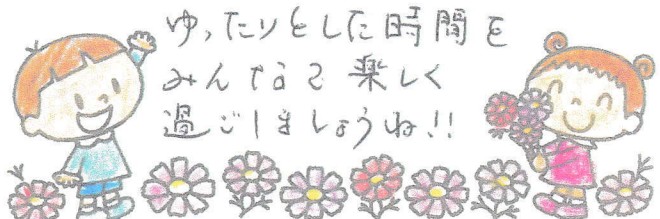 ゆったりとした時間を
みんなで楽しく
過ごしましょうね!!